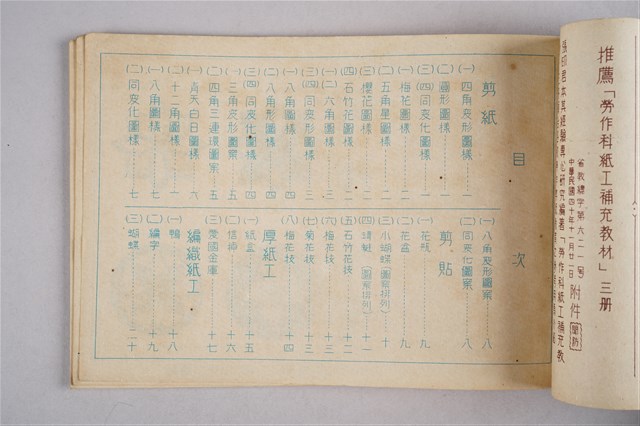 推薦「勞作科紙工補充教材」三册
省教總字第六二一一號
中華民國四十年十月廿一日
附件
目次
剪紙
(一)四角变形圖樣………一
(二)圓形圖樣………一
(三)四同变化圖樣………一
(一)梅花圖樣………一
(二)五角星圖樣………二
(三)櫻花圖樣………二
(四)石竹花圖樣………二
(一)六角圖樣………三
(二)四同变化圖樣………三
(一)八角圖樣………四
(二)八角形圖樣………四
(三)四同变化圖樣………四
(一)三角变形圖案………五
(二)四角三連環圖案………五
(一)青天白日圖樣………六
(二)十二角圖樣………
(一)八角圖樣………七
(二)同变化圖樣………七
(一)八角变形圖案………八
(二)同变化圖案………八
剪貼
(一)花瓶………九
(二)花盆………九
(三)小蝴蝶(圖案排列)………十
(四)蜻蜓(圖案排列)………十一
(五)石竹花枝………十二
(六)梅花枝………十三
(七)菊花枝………十三
(八)梅花枝………十四
厚紙工
(一)紙盒………十五
(二)信插………十六
(三)愛國金庫………十七
編織紙工
(一)鴨………十八
(二)編字………十九
(三)蝴蝶………二十